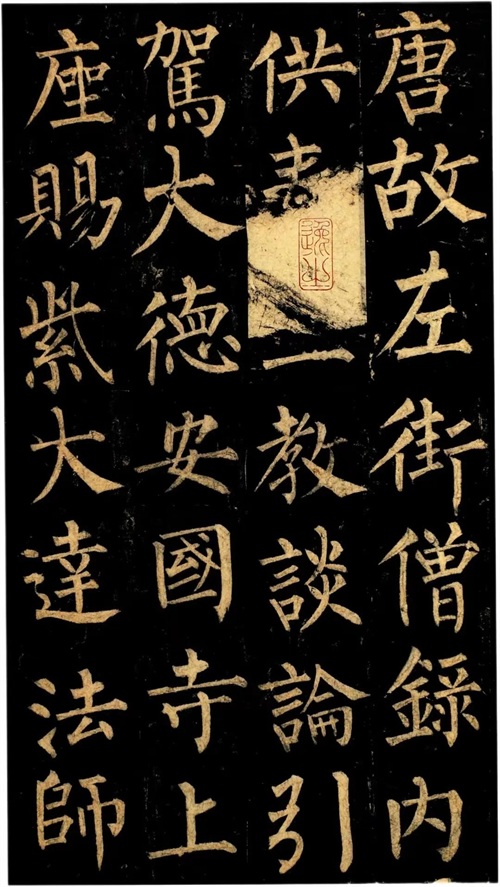 唐故左街僧錄内
供教談論引
駕大德安國寺上
座賜紫大達法師